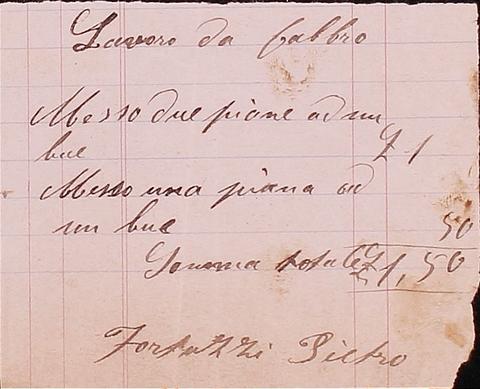 Lavoro da fabbro
Messo due piane ad un
bue £ 1
Messo una piana ad
un bue 50
Somma totale £ 1,50
Fortuzzi Pietro